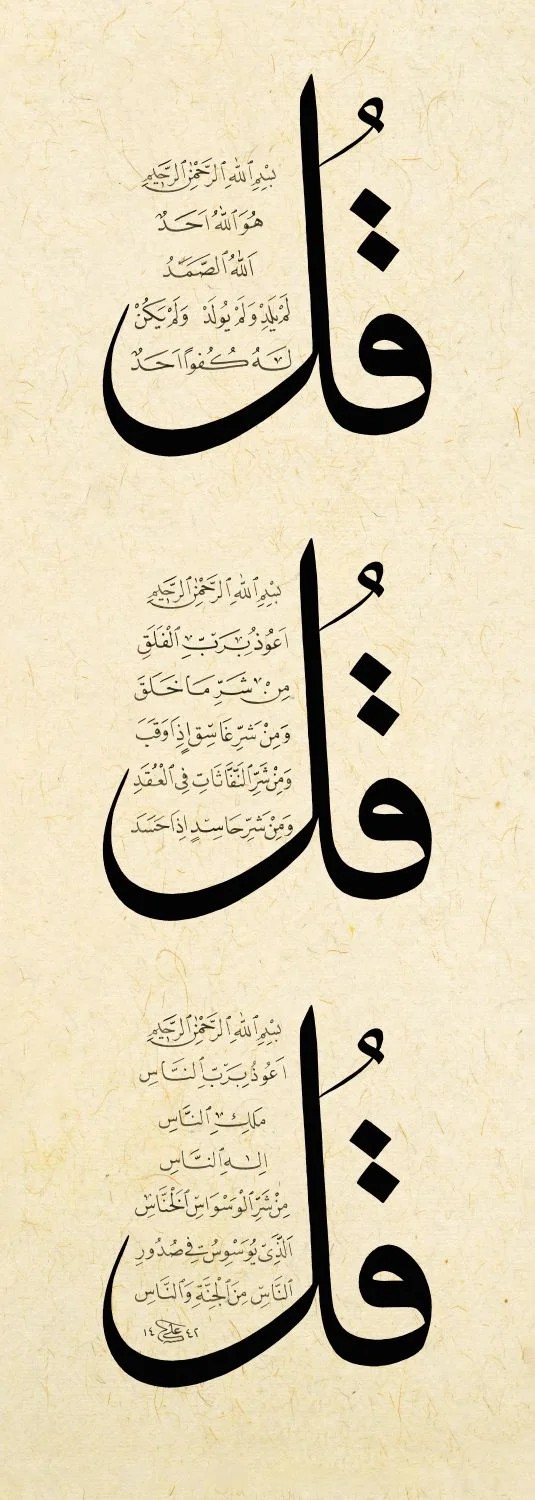 قُلْ
بِسْمِ ٱللّٰهِ ٱلرَّحْمٰنِ ٱلرَّحِيمِ
هُوَ ٱللّٰهُ اَحَدٌ
اَللّٰهُ ٱلصَّمَدُ
لَمْ يَلِدْ وَلَمْ يُولَدْ وَلَمْ يَكُنْ
لَهُ كُفُوًا اَحَدٌ
قُلْ
بِسْمِ ٱللّٰهِ ٱلرَّحْمٰنِ ٱلرَّحِيمِ
اَعُوذُ بِرَبِّ ٱلْفَلَقِ
مِنْ شَرِّ مَا خَلَقَ
وَمِنْ شَرِّ غَاسِقٍ اِذَا وَقَبَ
وَمِنْ شَرِّ ٱلنَّفَّاثَاتِ فِي ٱلْعُقَدِ
وَمِنْ شَرِّ حَاسِدٍ اِذَا حَسَدَ
قُلْ
بِسْمِ ٱللّٰهِ ٱلرَّحْمٰنِ ٱلرَّحِيمِ
اَعُوذُ بِرَبِّ ٱلنَّاسِ
مَلِكِ ٱلنَّاسِ
اِلٰهِ ٱلنَّاسِ
مِنْ شَرِّ ٱلْوَسْوَاسِ ٱلْخَنَّاسِ
اَلَّذِي يُوَسْوِسُ فِي صُدُورِ
ٱلنَّاسِ مِنَ ٱلْجِنَّةِ وَٱلنَّاسِ
١٤ ٤٢